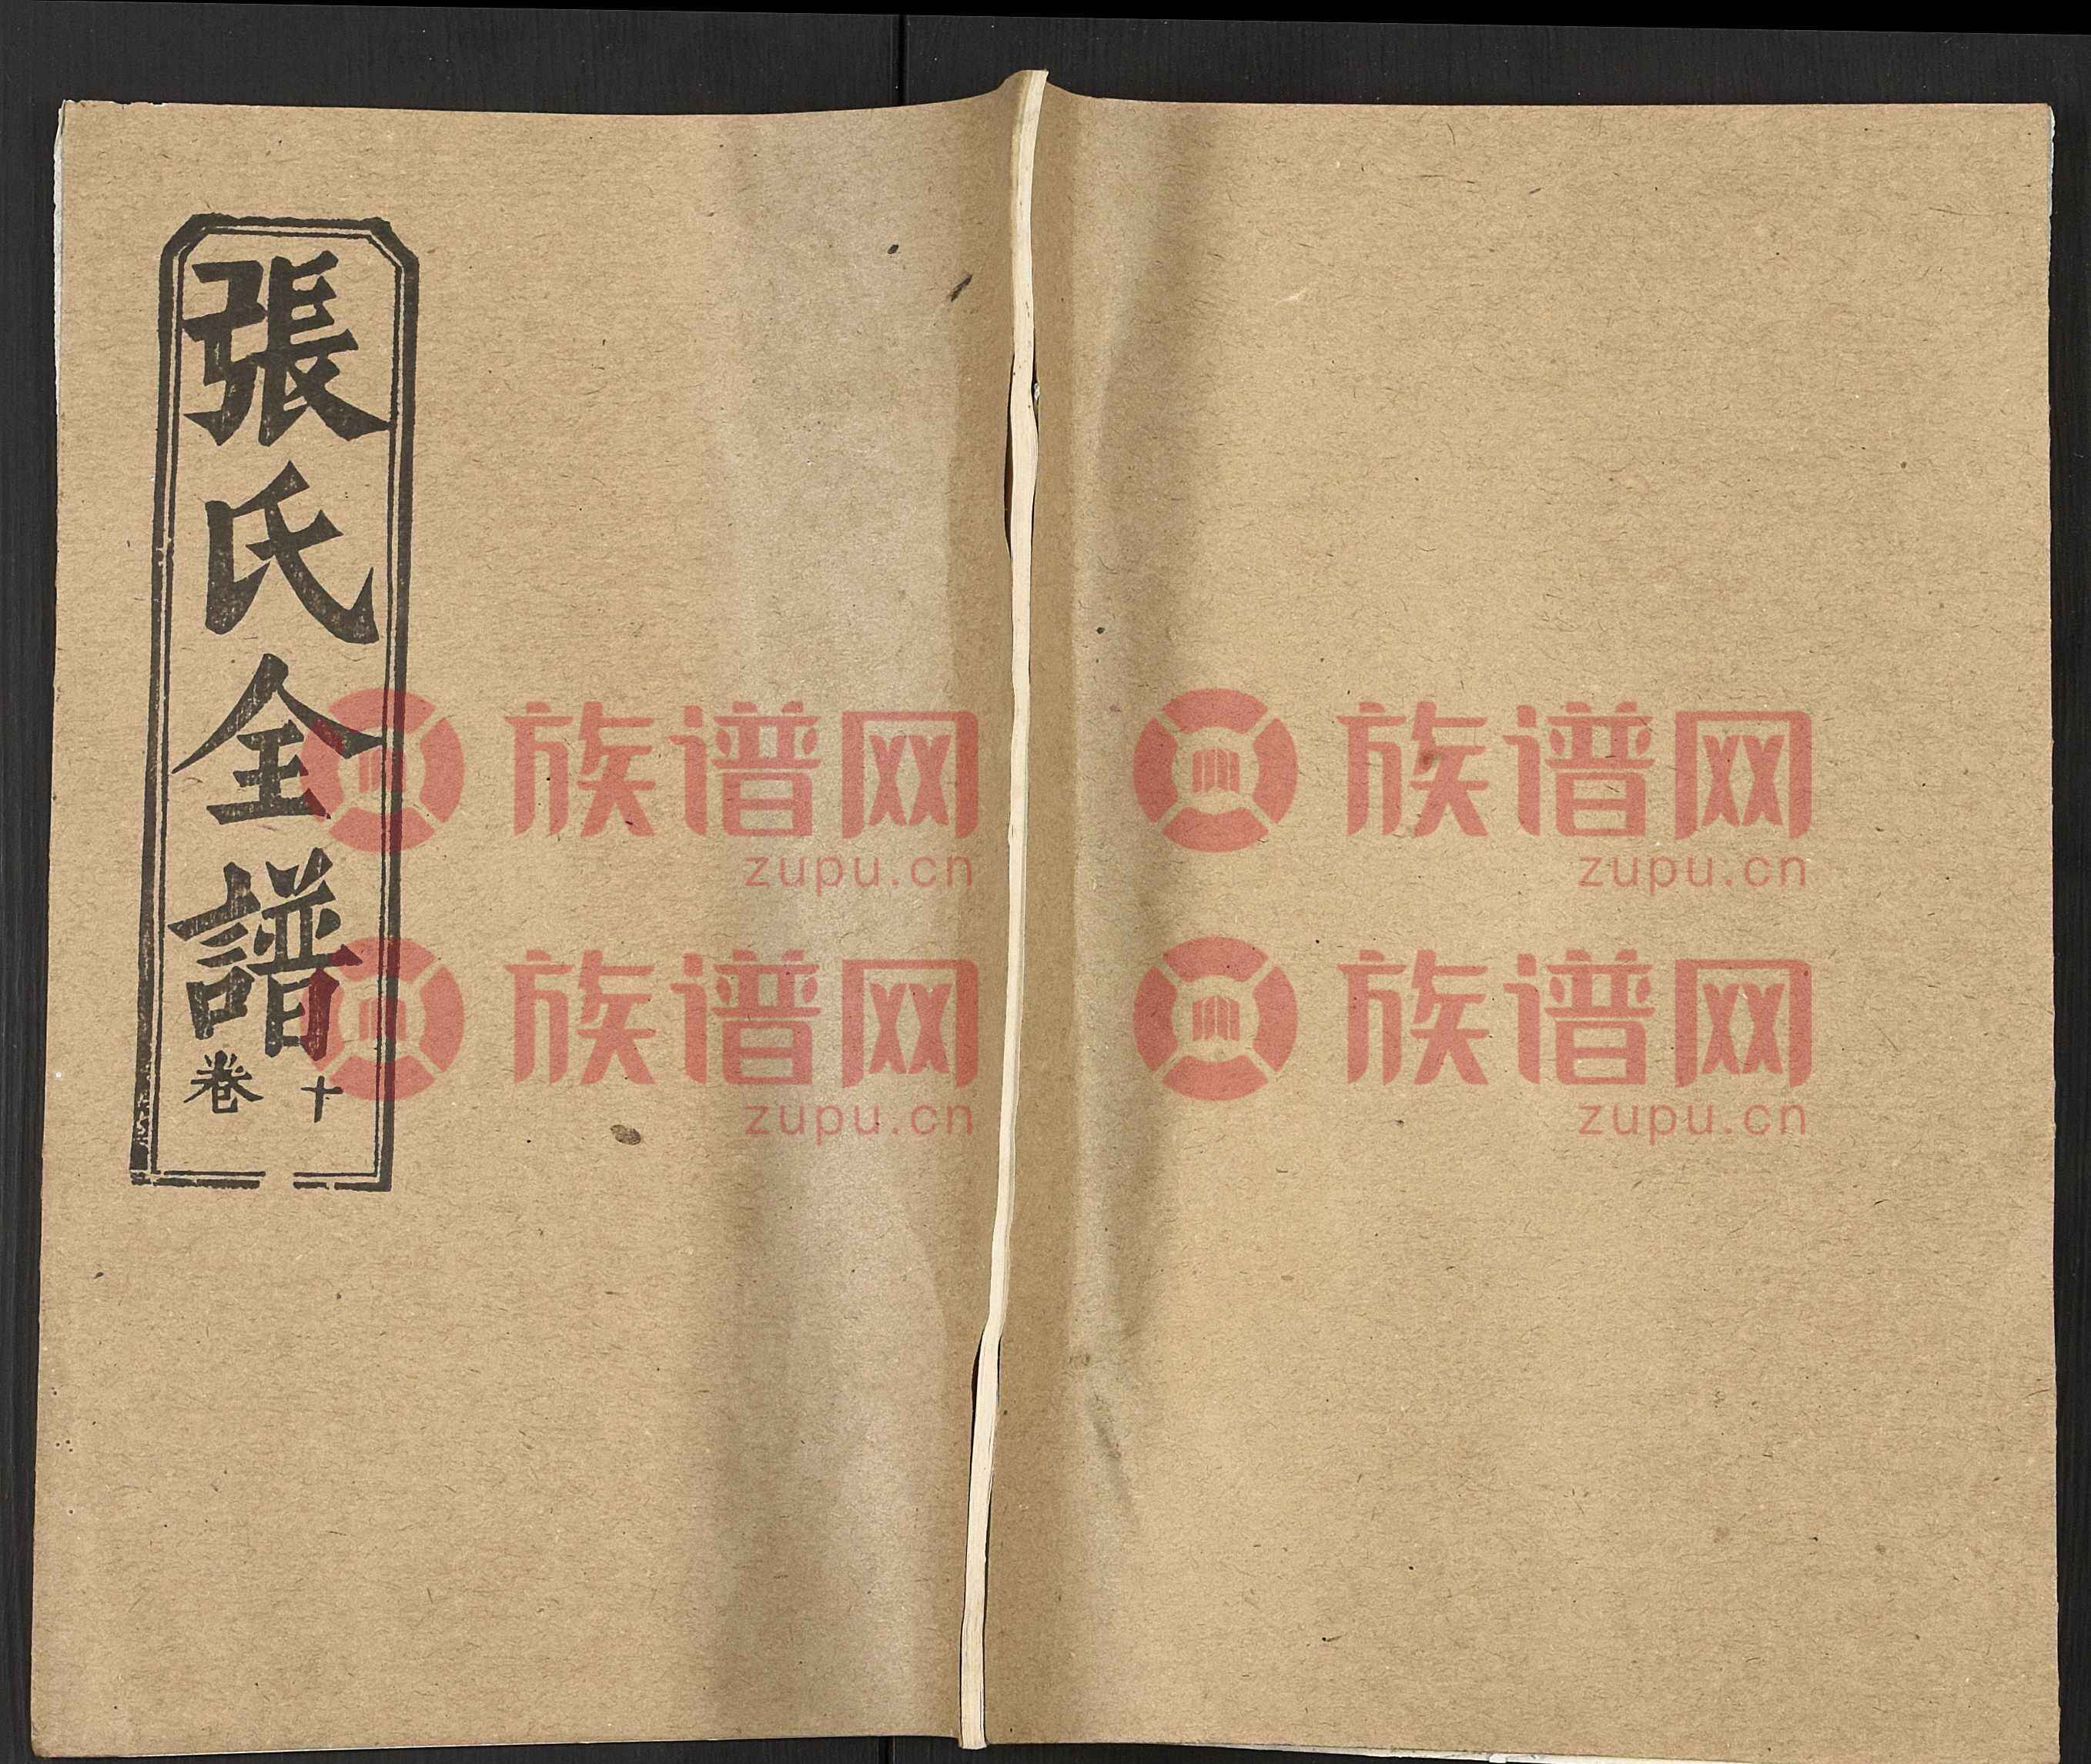 張氏全譜
卷十
族谱网
zupu.cn
族谱网
zupu.cn
族谱网
zupu.cn
族谱网
zupu.cn